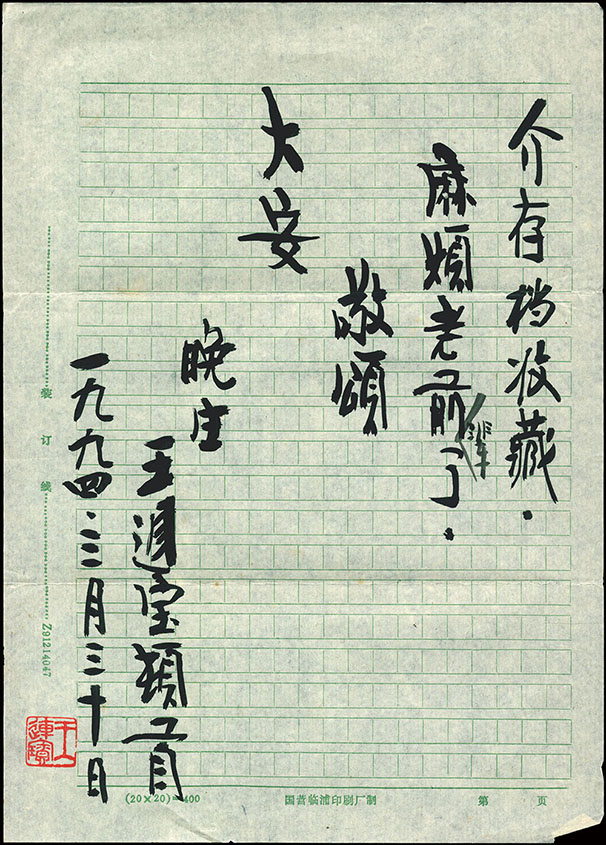 介存档收藏.
麻煩老前輩了.
敬頌
大安
晚生
王連宝頓首
一九九四.三月三十日
装订线
Z91214047
(20×20)=400
国营临浦印刷厂制
第 页